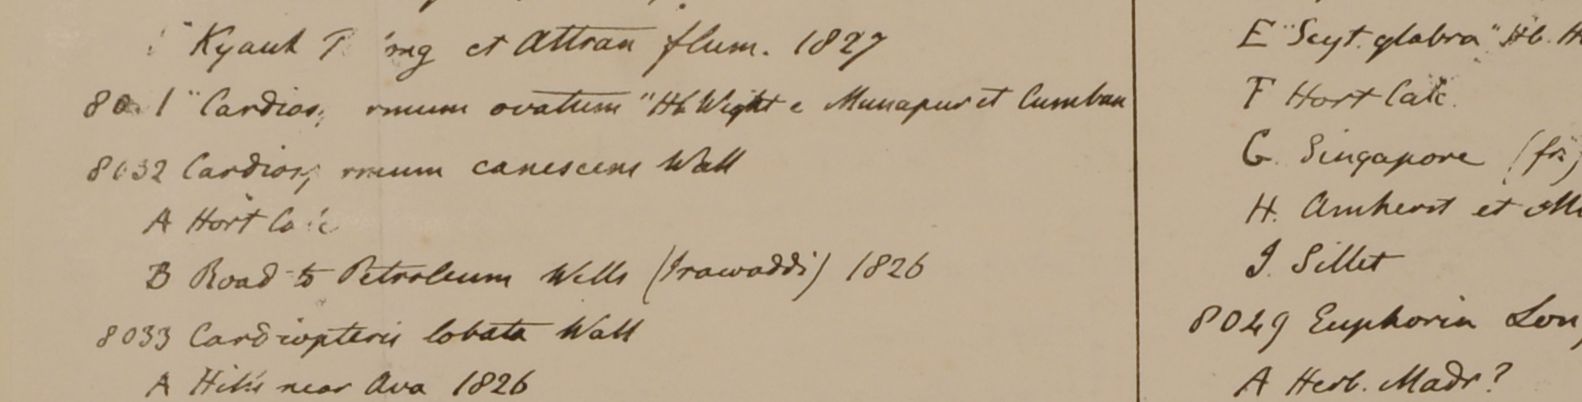 Kyauk et Attran flum. 1827
"Cardios rmum ovatum" Hb Wight e Munapur et Cumban
8032 Cardiosp rmum canescens Wall
A Hort
B Road to Petroleum Wells (Irawaddi) 1826
8033 Cardiopteris lobata Wall
A Hills near Ava 1826
E "Scyt. glabra" Hb. H
F Hort Calc.
G. Singapore (fr
H. Amherst et M
J. Sillet
8049 Euphoria Lon
A Herb. Madr?